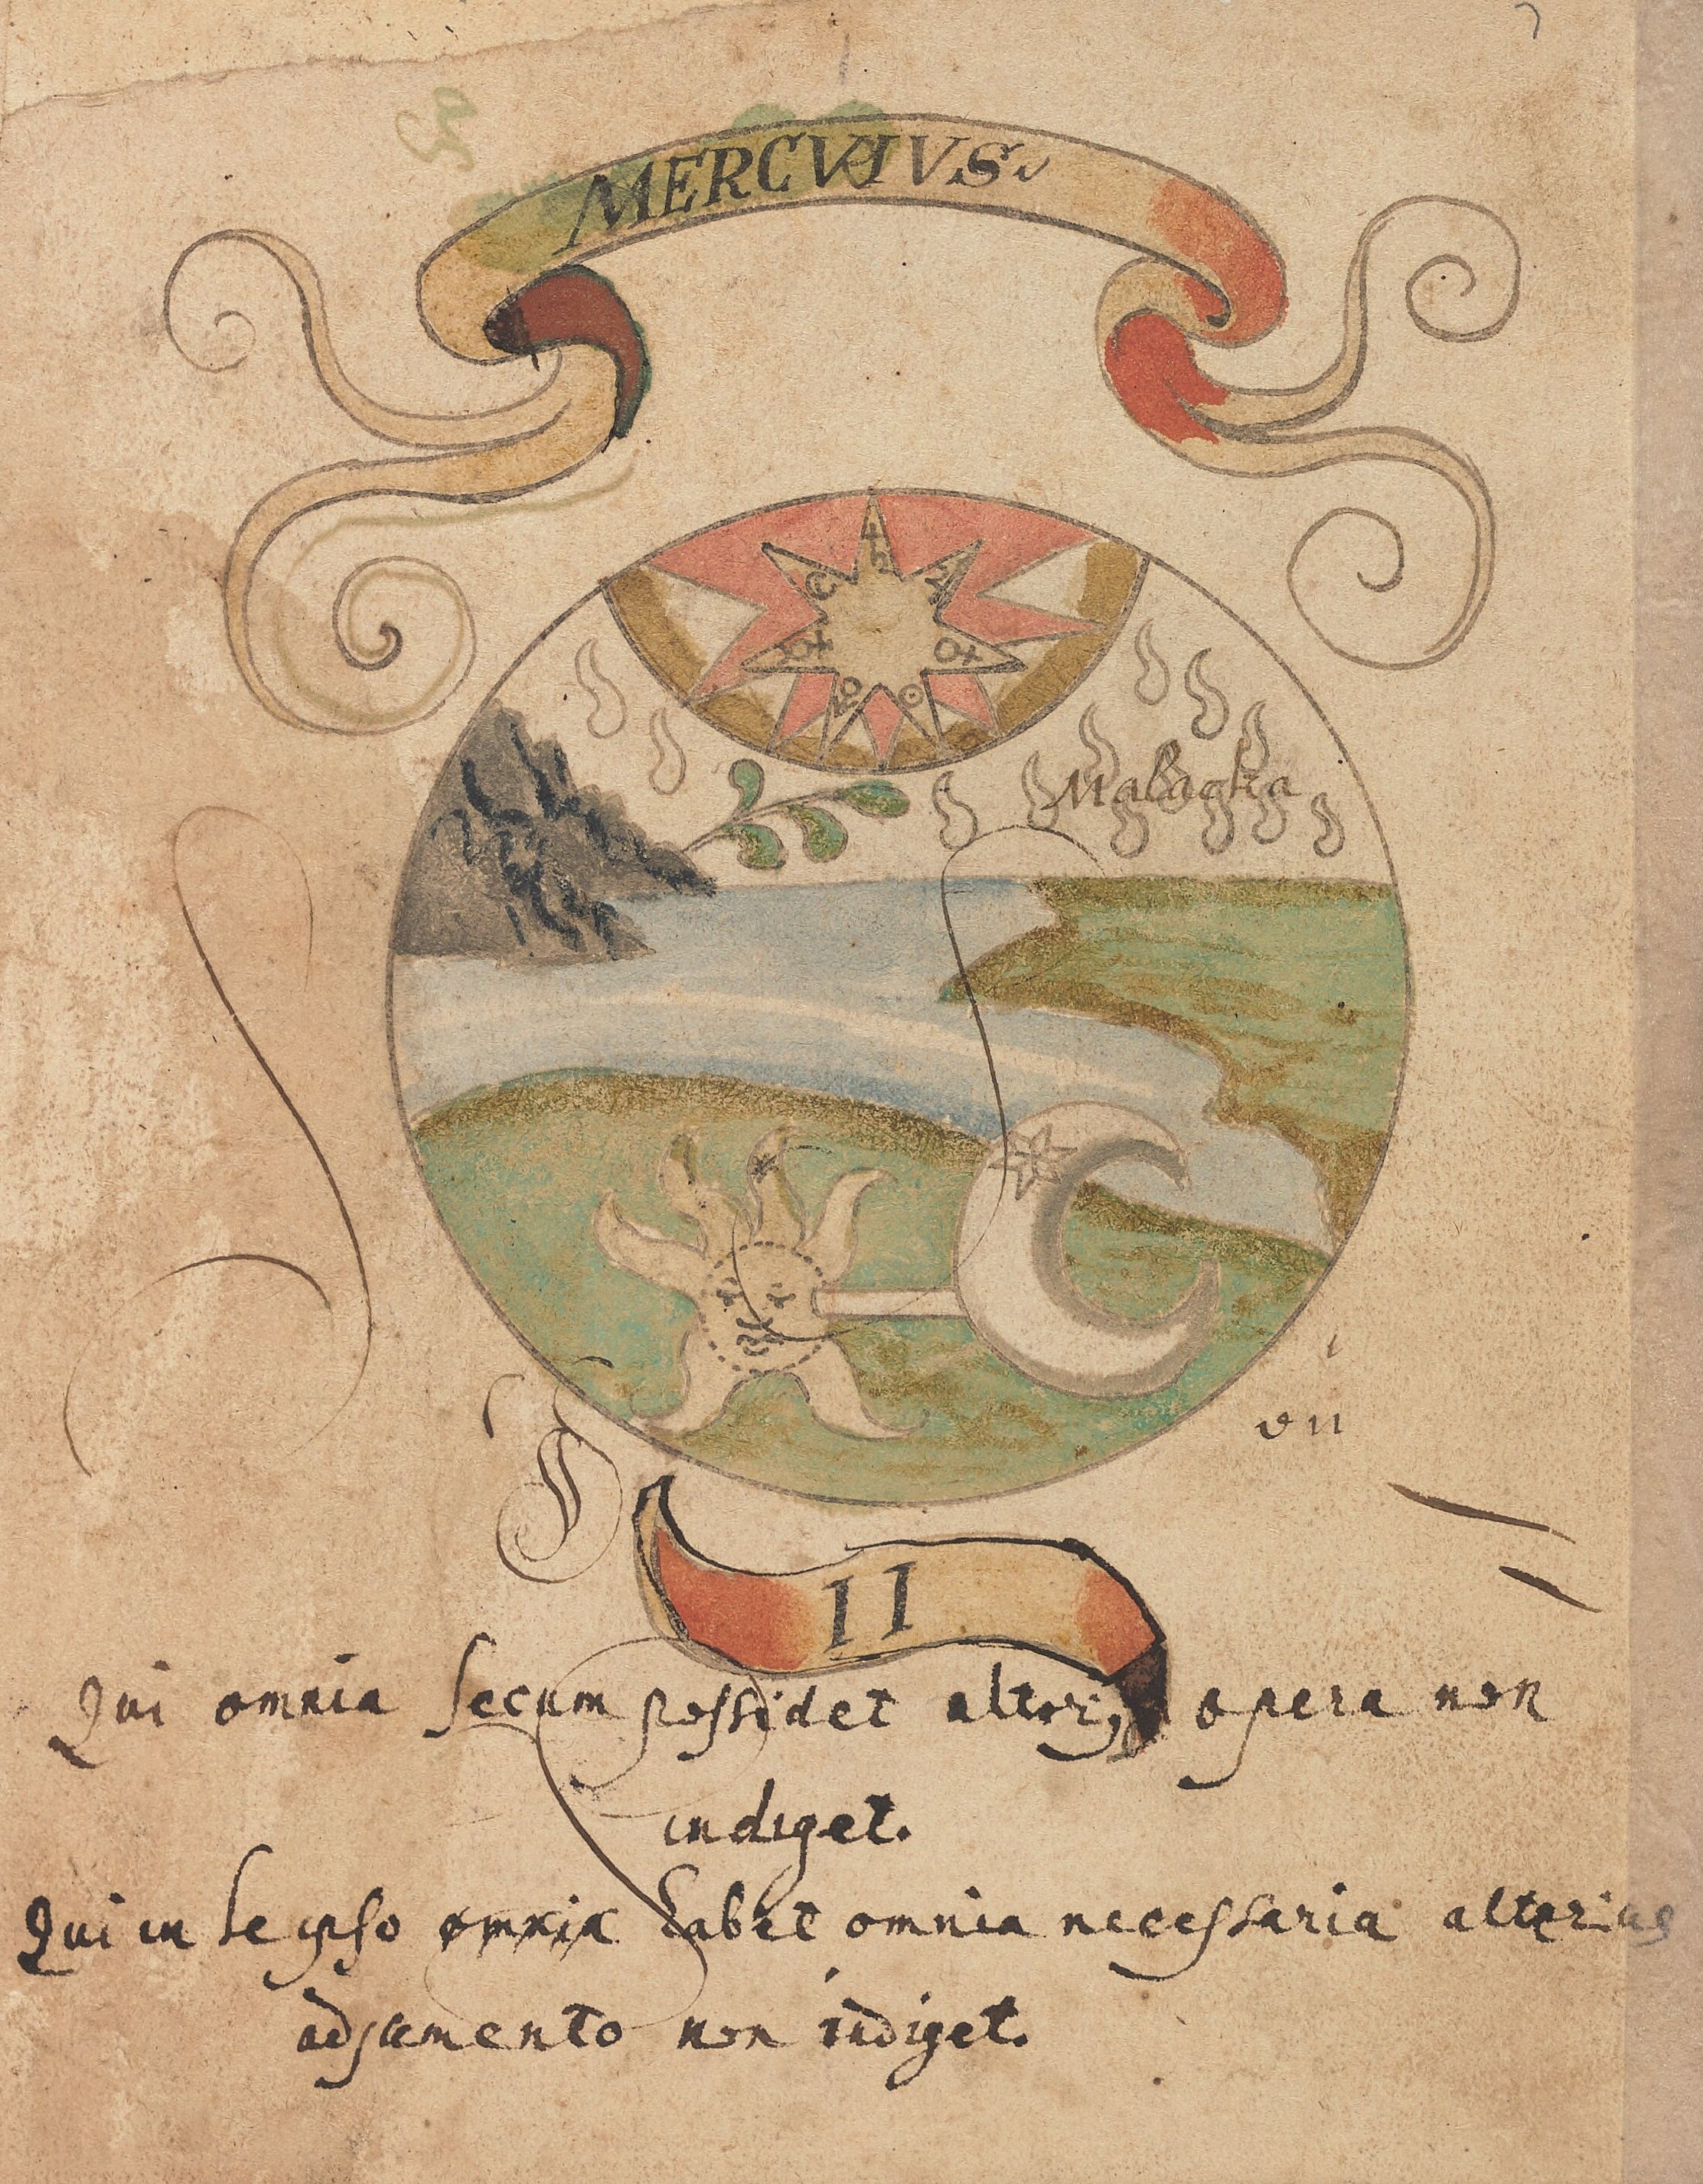 MERCVIVS
Malagka
vn
II
Qui omnia secum possidet alteri9 opera non
indiget.
Qui in se ipso omnia habet omnia necessaria alterius
adjumento non indiget.